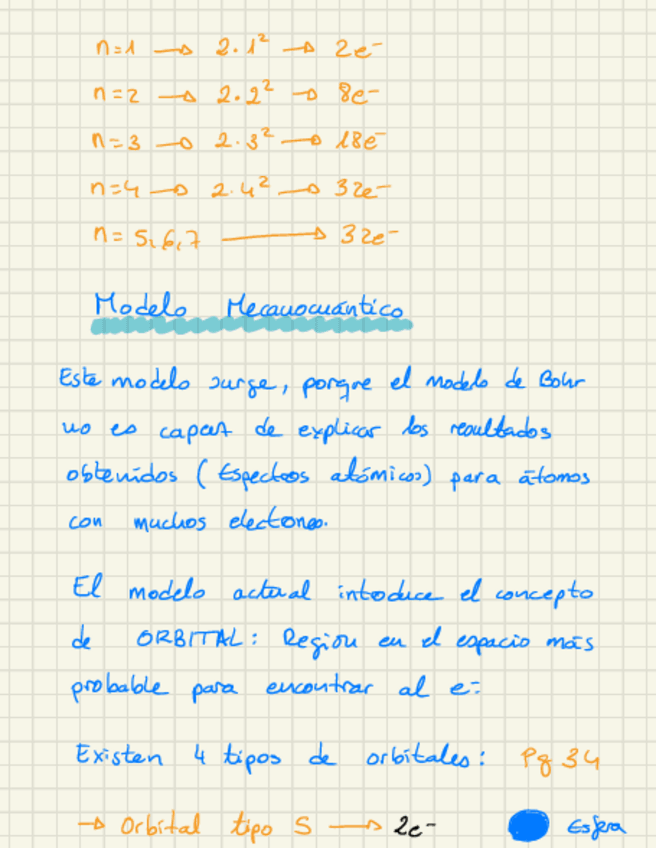 n=1 → 2·1² → 2e⁻
n=2 → 2·2² → 8e⁻
n=3 → 2·3² → 18e⁻
n=4 → 2·4² → 32e⁻
n= 5,6,7 → 32e⁻
Modelo Mecanocuántico
Este modelo surge, porque el modelo de Bohr
no es capaz de explicar los resultados
obtenidos (Espectros atómicos) para átomos
con muchos electrones.
El modelo actual introduce el concepto
de ORBITAL: Región en el espacio más
probable para encontrar al e⁻.
Existen 4 tipos de orbitales: Pg 34
→ Orbital tipo S → 2e⁻ Esfera